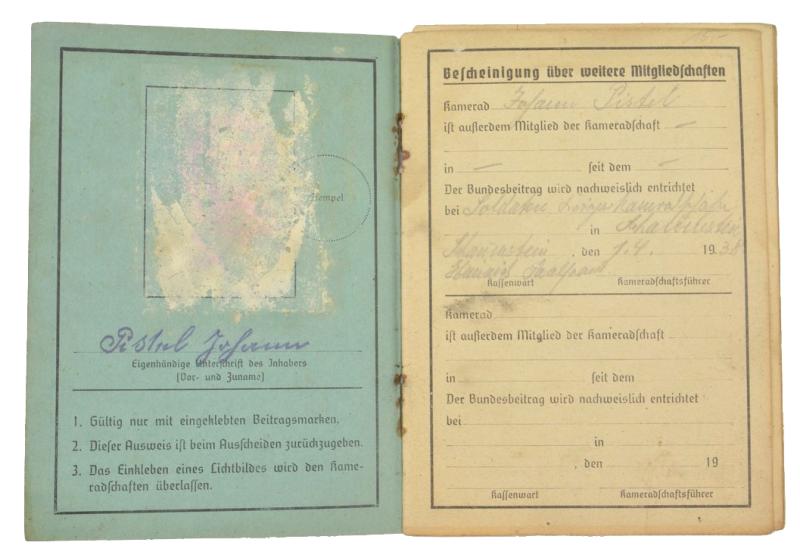 Stempel
Pistel Johann
Eigenhändige Unterschrift des Inhabers
(Vor- und Zuname)
1. Gültig nur mit eingeklebten Beitragsmarken.
2. Dieser Ausweis ist beim Ausscheiden zurückzugeben.
3. Das Einkleben eines Lichtbildes wird den Kame-
radschaften überlassen.
Bescheinigung über weitere Mitgliedschaften
Kamerad Johann Pistel
ist außerdem Mitglied der Kameradschaft –
in – seit dem –
Der Bundesbeitrag wird nachweislich entrichtet
bei Soldaten
in
, den 7.4. 1938
Kassenwart Kameradschaftsführer
Kamerad
ist außerdem Mitglied der Kameradschaft
in seit dem
Der Bundesbeitrag wird nachweislich entrichtet
bei
in
, den 19
Kassenwart Kameradschaftsführer